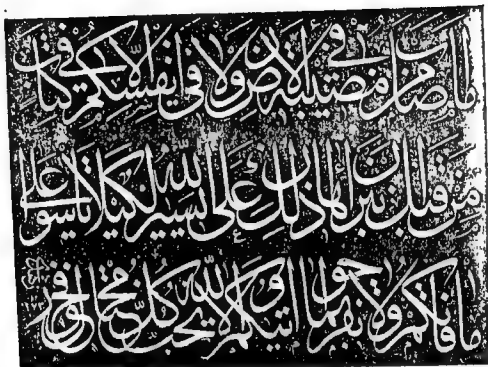 ما اصاب من مصيبة فى الارض ولا فى انفسكم الا فى كتاب
من قبل ان نبراها ان ذلك على الله يسير لكيلا تاسوا على
ما فاتكم ولا تفرحوا بما اتيكم والله لا يحب كل مختال فخور